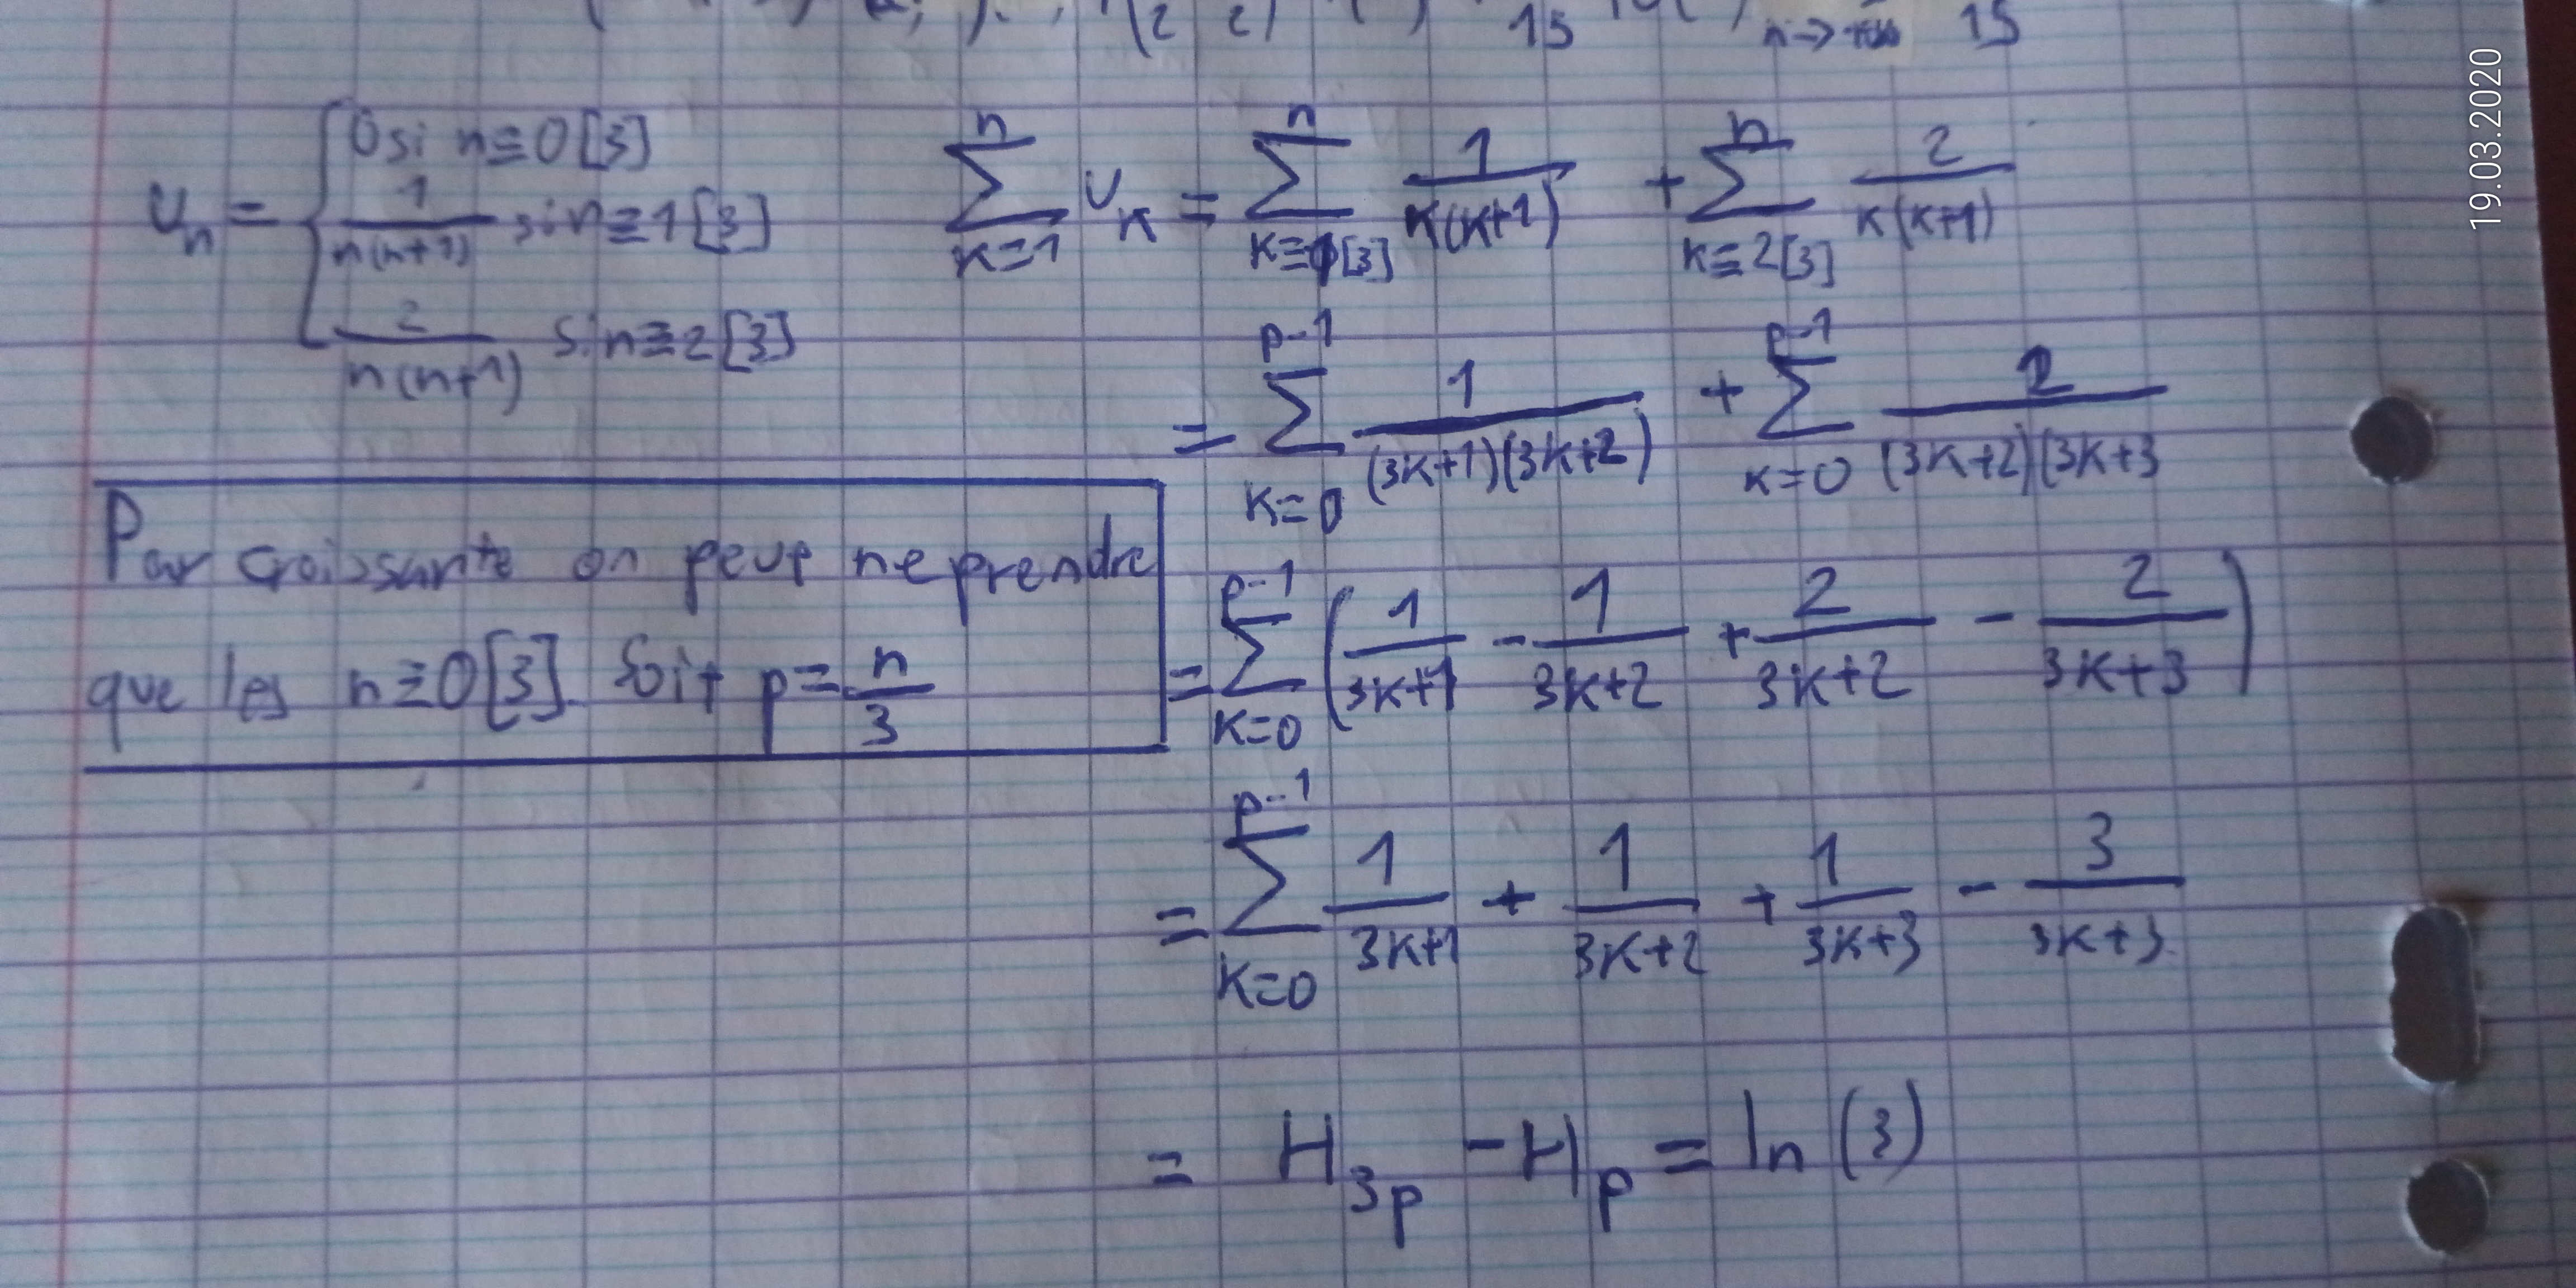 15 n→+∞ 15
19.03.2020
u_n = { 0 si n≡0[3]
1/(n(n+1)) si n≡1[3]
2/(n(n+1)) si n≡2[3]
∑_{k=1}^{n} u_k = ∑_{k≡1[3]}^{n} 1/(k(k+1)) + ∑_{k≡2[3]}^{n} 2/(k(k+1))
= ∑_{k=0}^{p-1} 1/((3k+1)(3k+2)) + ∑_{k=0}^{p-1} 2/((3k+2)(3k+3
Par croissante on peut ne prendre
que les n≡0[3]. Soit p=n/3
= ∑_{k=0}^{p-1} (1/(3k+1) - 1/(3k+2) + 2/(3k+2) - 2/(3k+3))
= ∑_{k=0}^{p-1} 1/(3k+1) + 1/(3k+2) + 1/(3k+3) - 3/(3k+3)
= H_{3p} - H_p = ln(3)